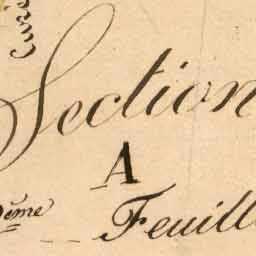 Section
A
ème Feuill